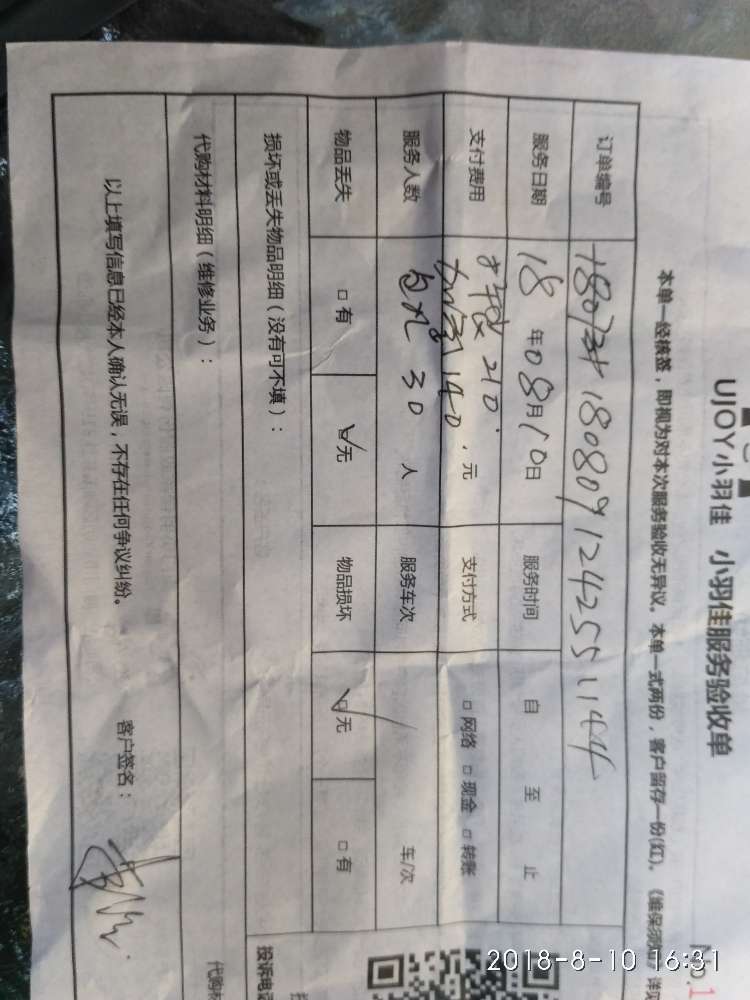 UJOY小羽佳 小羽佳服务验收单
No.1
本单一经核签，即视为对本次服务验收无异议。本单一式两份，客户留存一份(红)。
订单编号 180809124255
服务日期 18年08月10日 服务时间 自 至 止
支付费用 210. 140. 元 支付方式 □网络 □现金 □转账
服务人数 30 人 服务车次 车/次
物品丢失 □有 ☑无 物品损坏 ☑无 □有
损坏或丢失物品明细（没有可不填）：
代购材料明细（维修业务）：
代购材
以上填写信息已经本人确认无误，不存在任何争议纠纷。 客户签名：
投诉电
2018-8-10 16:31